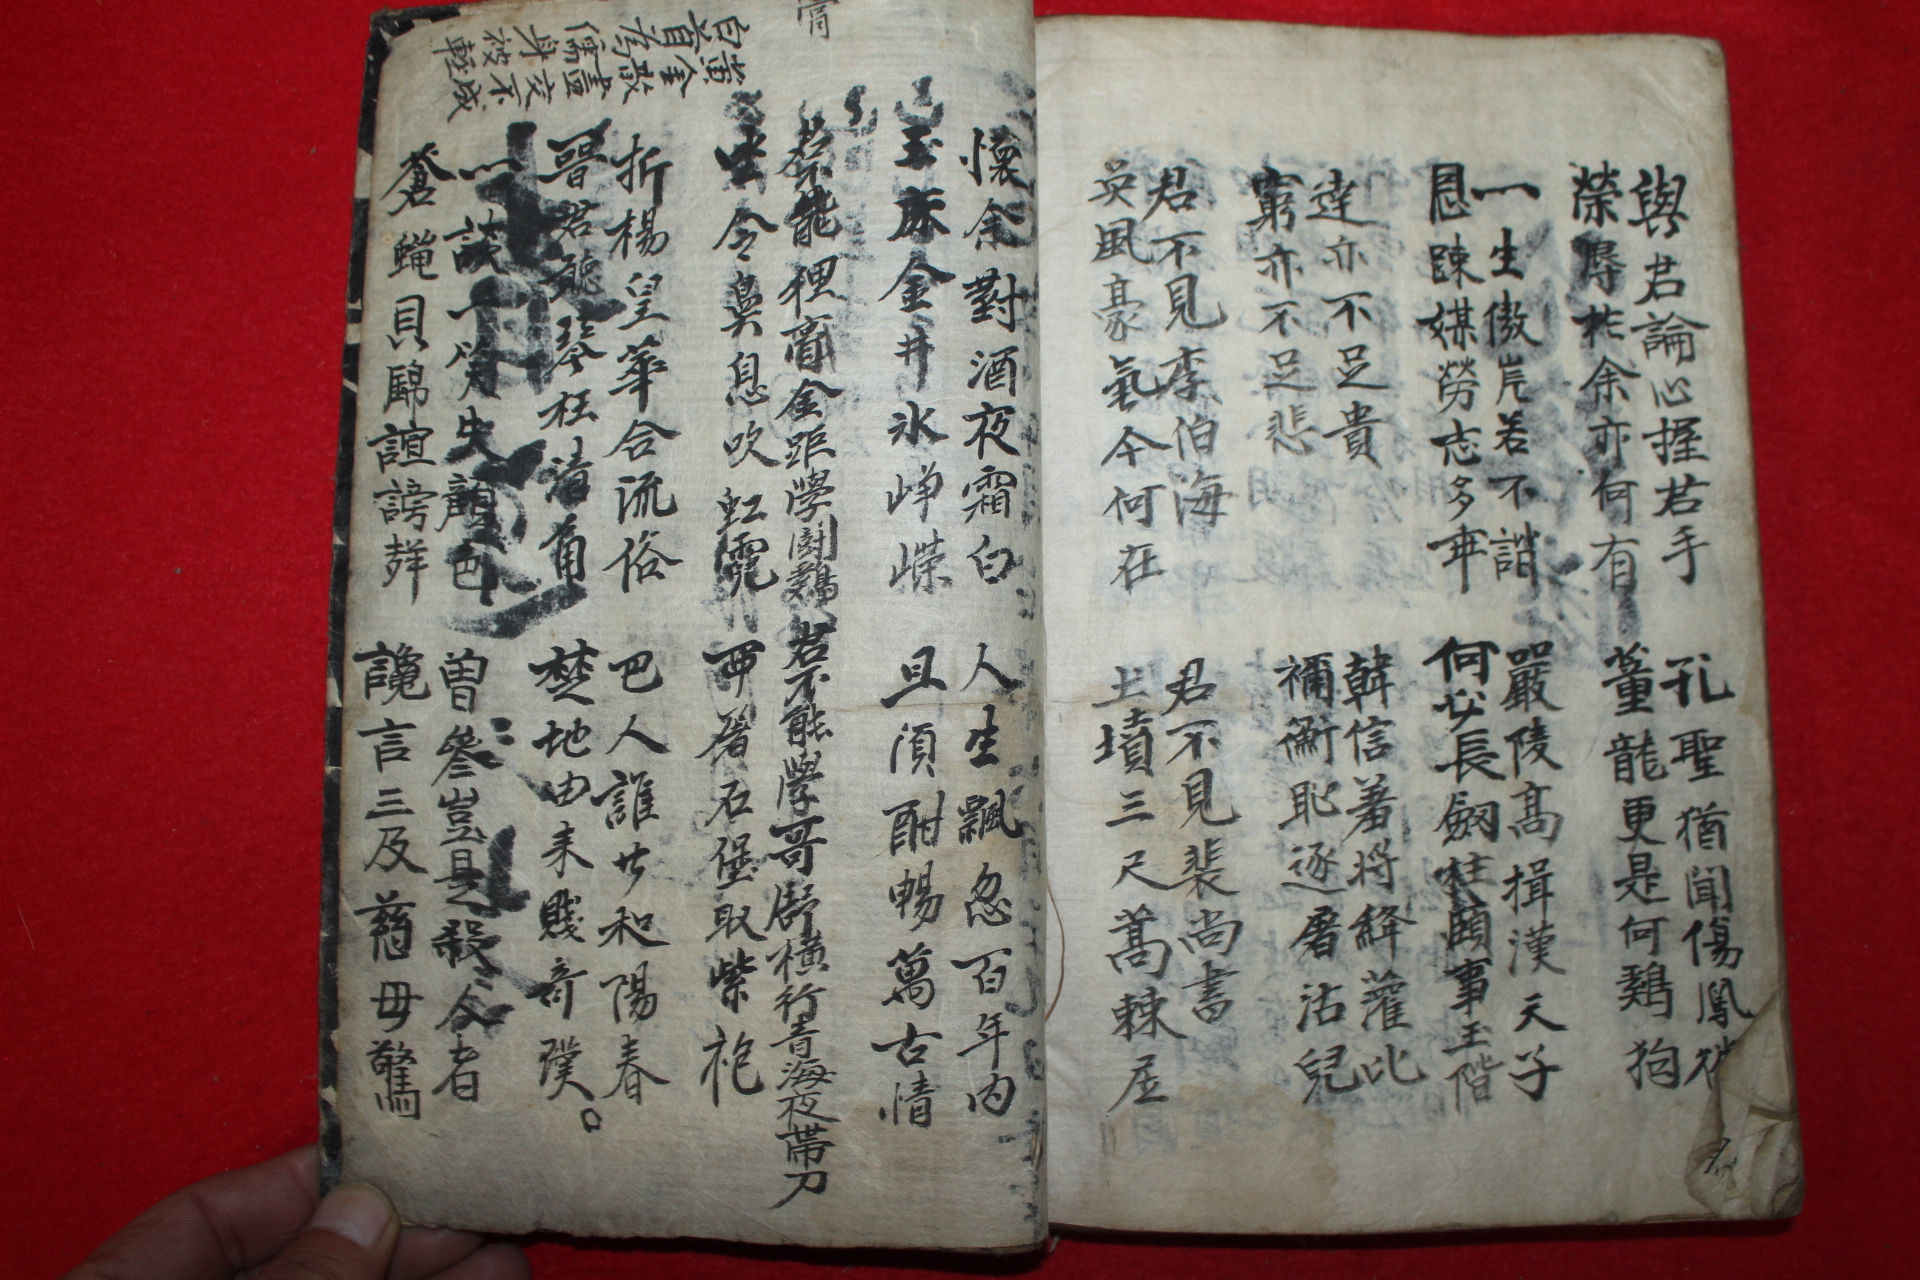 與君論心握君手
榮辱於余亦何有
孔聖猶聞傷鳳
董龍更是何鷄狗
一生傲岸若不諧
恩疎媒勞志多乖
嚴陵高揖漢天子
何必長劒拄頤事玉階
達亦不足貴
窮亦不足悲
韓信羞將絳灌比
禰衡恥逐屠沽兒
君不見李伯海
英風豪氣今何在
君不見裴尚書
土墳三尺蒿棘居
懷余對酒夜霜白
玉床金井氷崢嶸
人生飄忽百年內
且須酣暢萬古情
膏
君不能狸膏金距學鬪鷄
坐令鼻息吹虹霓
君不能學哥舒橫行靑海夜帶刀
西屠石堡取紫袍
折楊皇華合流俗
晉君聽琴枉淸角
巴人誰和陽春
楚地由來賤奇璞
黃金散盡交不成
白首爲儒身被輕
一談一笑失顔色
蒼蠅貝錦誼謗聲
曾參豈是殺人者
讒言三及慈母驚